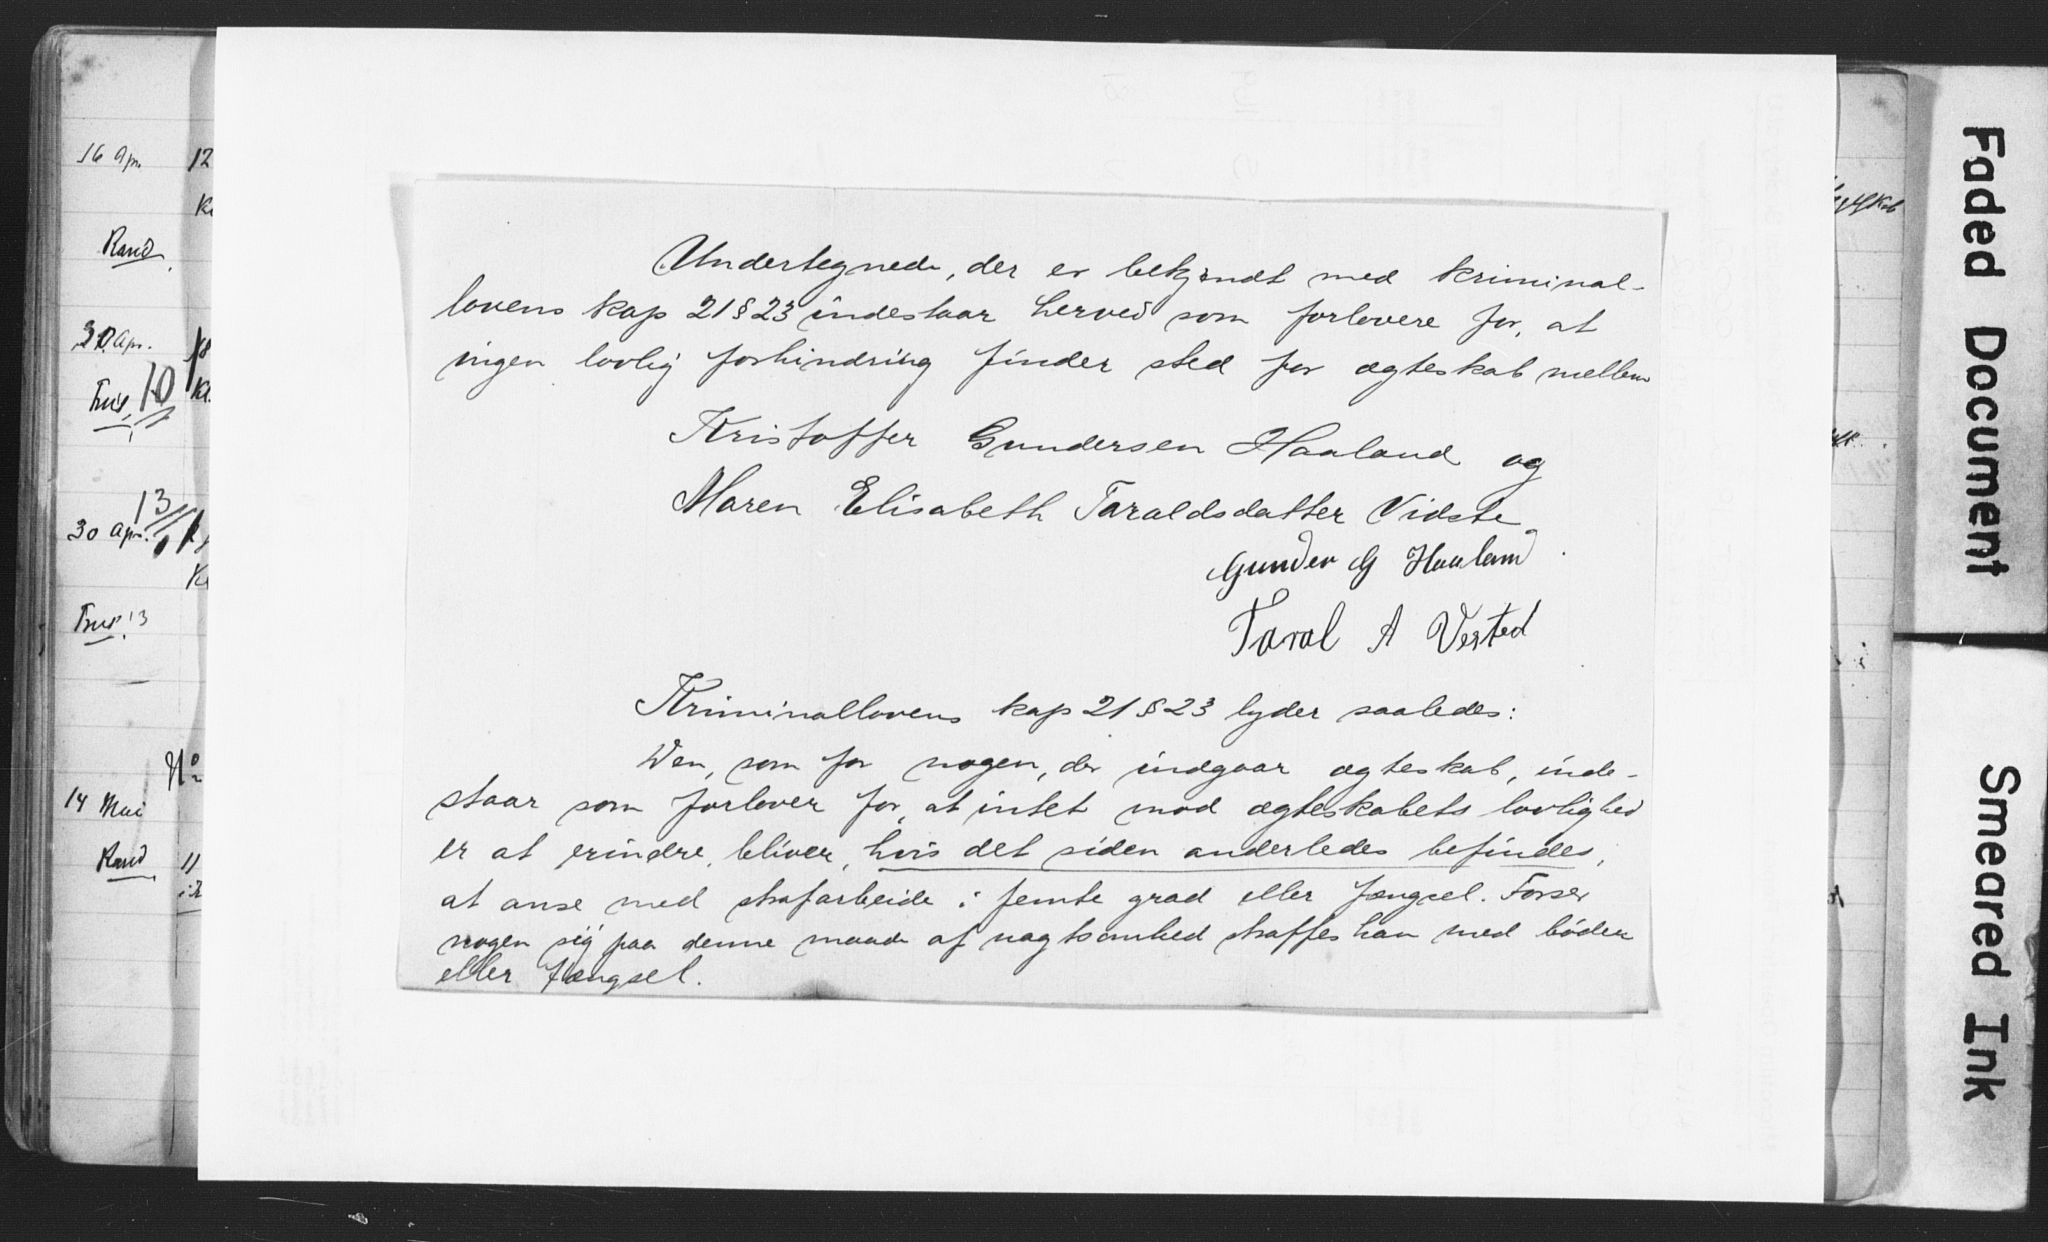 Undertegnede, der er bekjendt med kriminal-
lovens kap 21 § 23 indestaar herved som forlovere for, at
ingen lovlig forhindring finder sted for ægteskab mellem
Kristoffer Gundersen Haaland og
Maren Elisabeth Taraldsdatter Vidste
Gunder G Haaland
Taral A Vested
Kriminallovens kap 21 § 23 lyder saaledes:
Den, som for nogen, der indgaar ægteskab, inde-
staar som forlover for, at intet mod ægteskabets lovlighed
er at erindre, bliver, hvis det siden anderledes befindes,
at anse med strafarbeide i femte grad eller fængsel. Forser
nogen sig paa denne maade af uagtsomhed straffes han med bøder
eller fængsel.
16 Apr. 12
Rand.
30 Apr.
10
13
30 Apr.
13
No
14 Mai
Rand 11
Faded Document
Smeared Ink